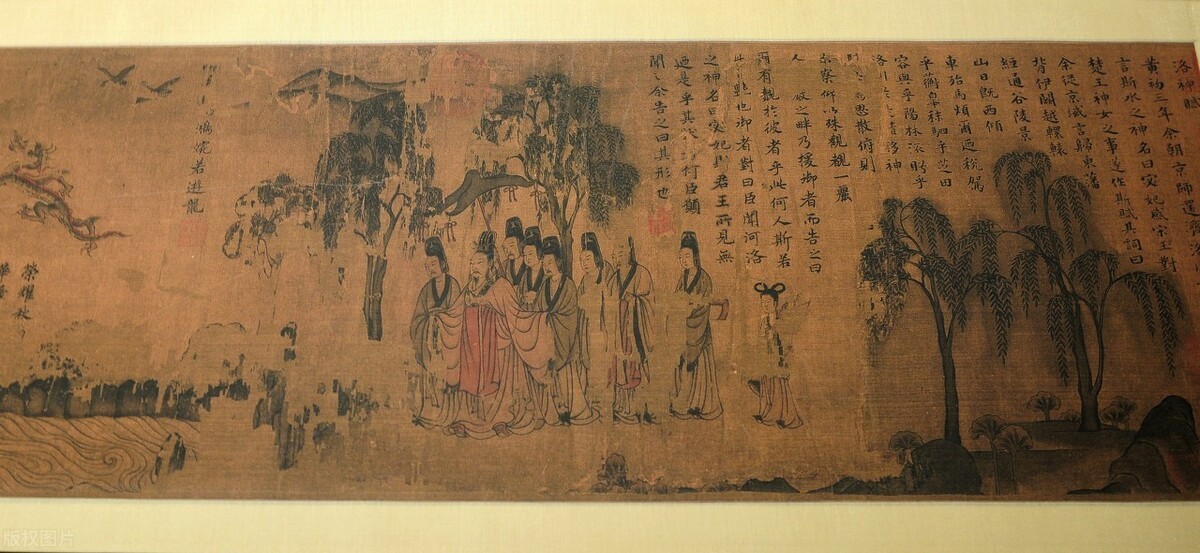 洛神賦
黃初三年余朝京師還
言斯水之神名曰宓妃感宗玉對
楚王神女之事遂作斯賦其詞曰
余從京域言歸東藩
背伊闕越轘轅
經通谷陵景
山日旣西傾
車殆馬煩爾迺稅駕
乎蘅皋秣駟乎芝田
容與乎陽林流眄乎
洛川於 精移神
思散俯則
察仰以殊觀覩一麗
人 之畔乃援御者而告之曰
爾有覿於彼者乎此何人斯若
此 艷也御者對曰臣聞河洛
之神名曰宓妃則君王所見無
迺是乎其 何臣願
聞之余告之曰其形也
鴻婉若遊龍
榮耀秋
版权图片